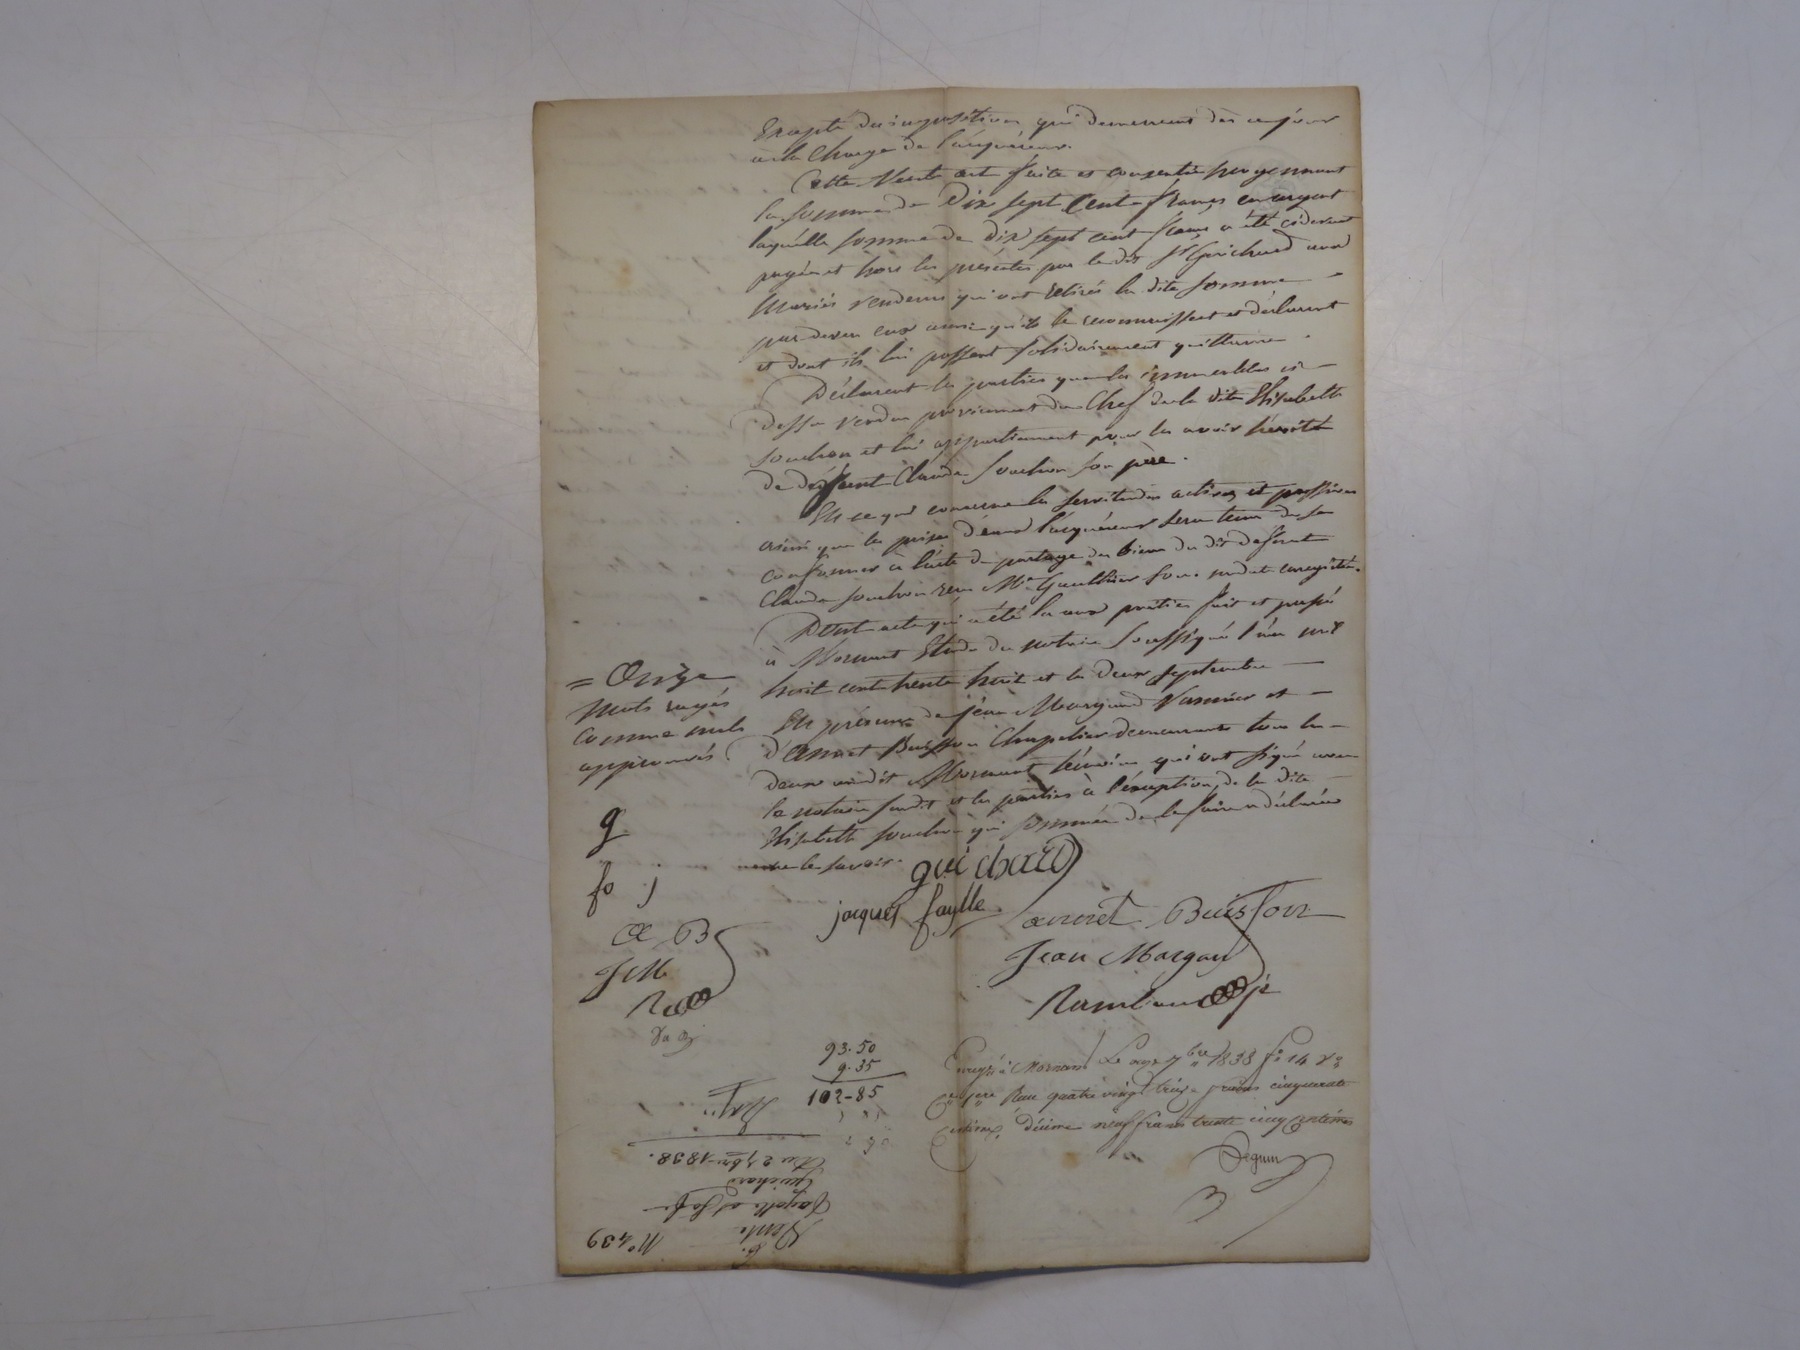 Excepté des impositions qui demeurent dès ce jour
à la Charge de l'acquéreur.
Cette Vente est faite et consentie moyennant
la somme de Dix sept Cents francs en argent
laquelle somme de dix sept cent francs a été cidevant
payée et hors les présentes par le dit Sr Guichard aux
Mariés vendeurs qui ont retirés la dite somme
par devers eux ainsi qu'ils le reconnoissent et déclarent
et dont ils lui passent solidairement quittance.
Déclarent les parties que les immeubles ci-
dessus vendus proviennent du Chef de la dite Elisabeth
Souchon et lui appartiennent pour les avoir hérité
de défunt Claude Souchon son père.
En ce qui concerne les servitudes actives et passives
ainsi que les prises d'eaux l'acquéreur sera tenu de se
conformer à l'acte de partage des biens du dit defunt
Claude Souchon reçu Me Gaulthier enregistré.
Dont acte qui a été lu aux parties fait et passé
à Mornant Etude du notaire soussigné l'an mil
huit cent trente huit et le deux septembre
En présence de Jean Margand Vannier et
d'Annet Buisson Chapelier demeurants tous les
deux audit Mornant témoins qui ont signé avec
le notaire susdit et les parties à l'exception de la dite
Elisabeth Souchon qui sommée de le faire a déclarée
ne le savoir.
= Onze
mots rayés
comme nuls
approuvés
g
fa j
A B
J M
R
guichard
jacques fayelle
annet Buisson
Jean Margan
93.50
9.35
102-85
Enregé à Mornant Le onze 7bre 1838 fo 14 Vo
Reçu quatre vingt treize francs cinquante
Centimes, décime neuf francs trente cinq centimes
Seguin
No 439
Vente
Fayelle et
Guichard
Du 2 7bre 1838.